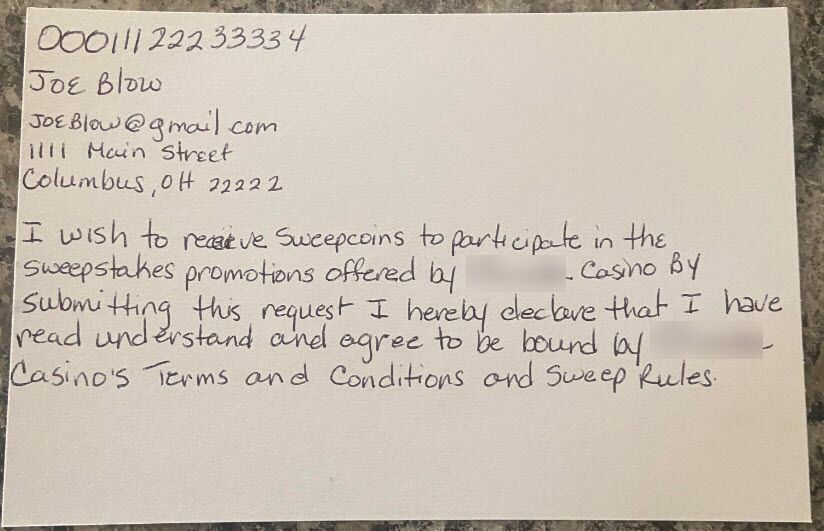 00011122233334
JOE Blow
JOEBlow@gmail.com
1111 Main Street
Columbus, OH 22222
I wish to receive Sweepcoins to participate in the
Sweepstakes promotions offered by . Casino By
submitting this request I hereby declare that I have
read understand and agree to be bound by
Casino's Terms and Conditions and Sweep Rules.